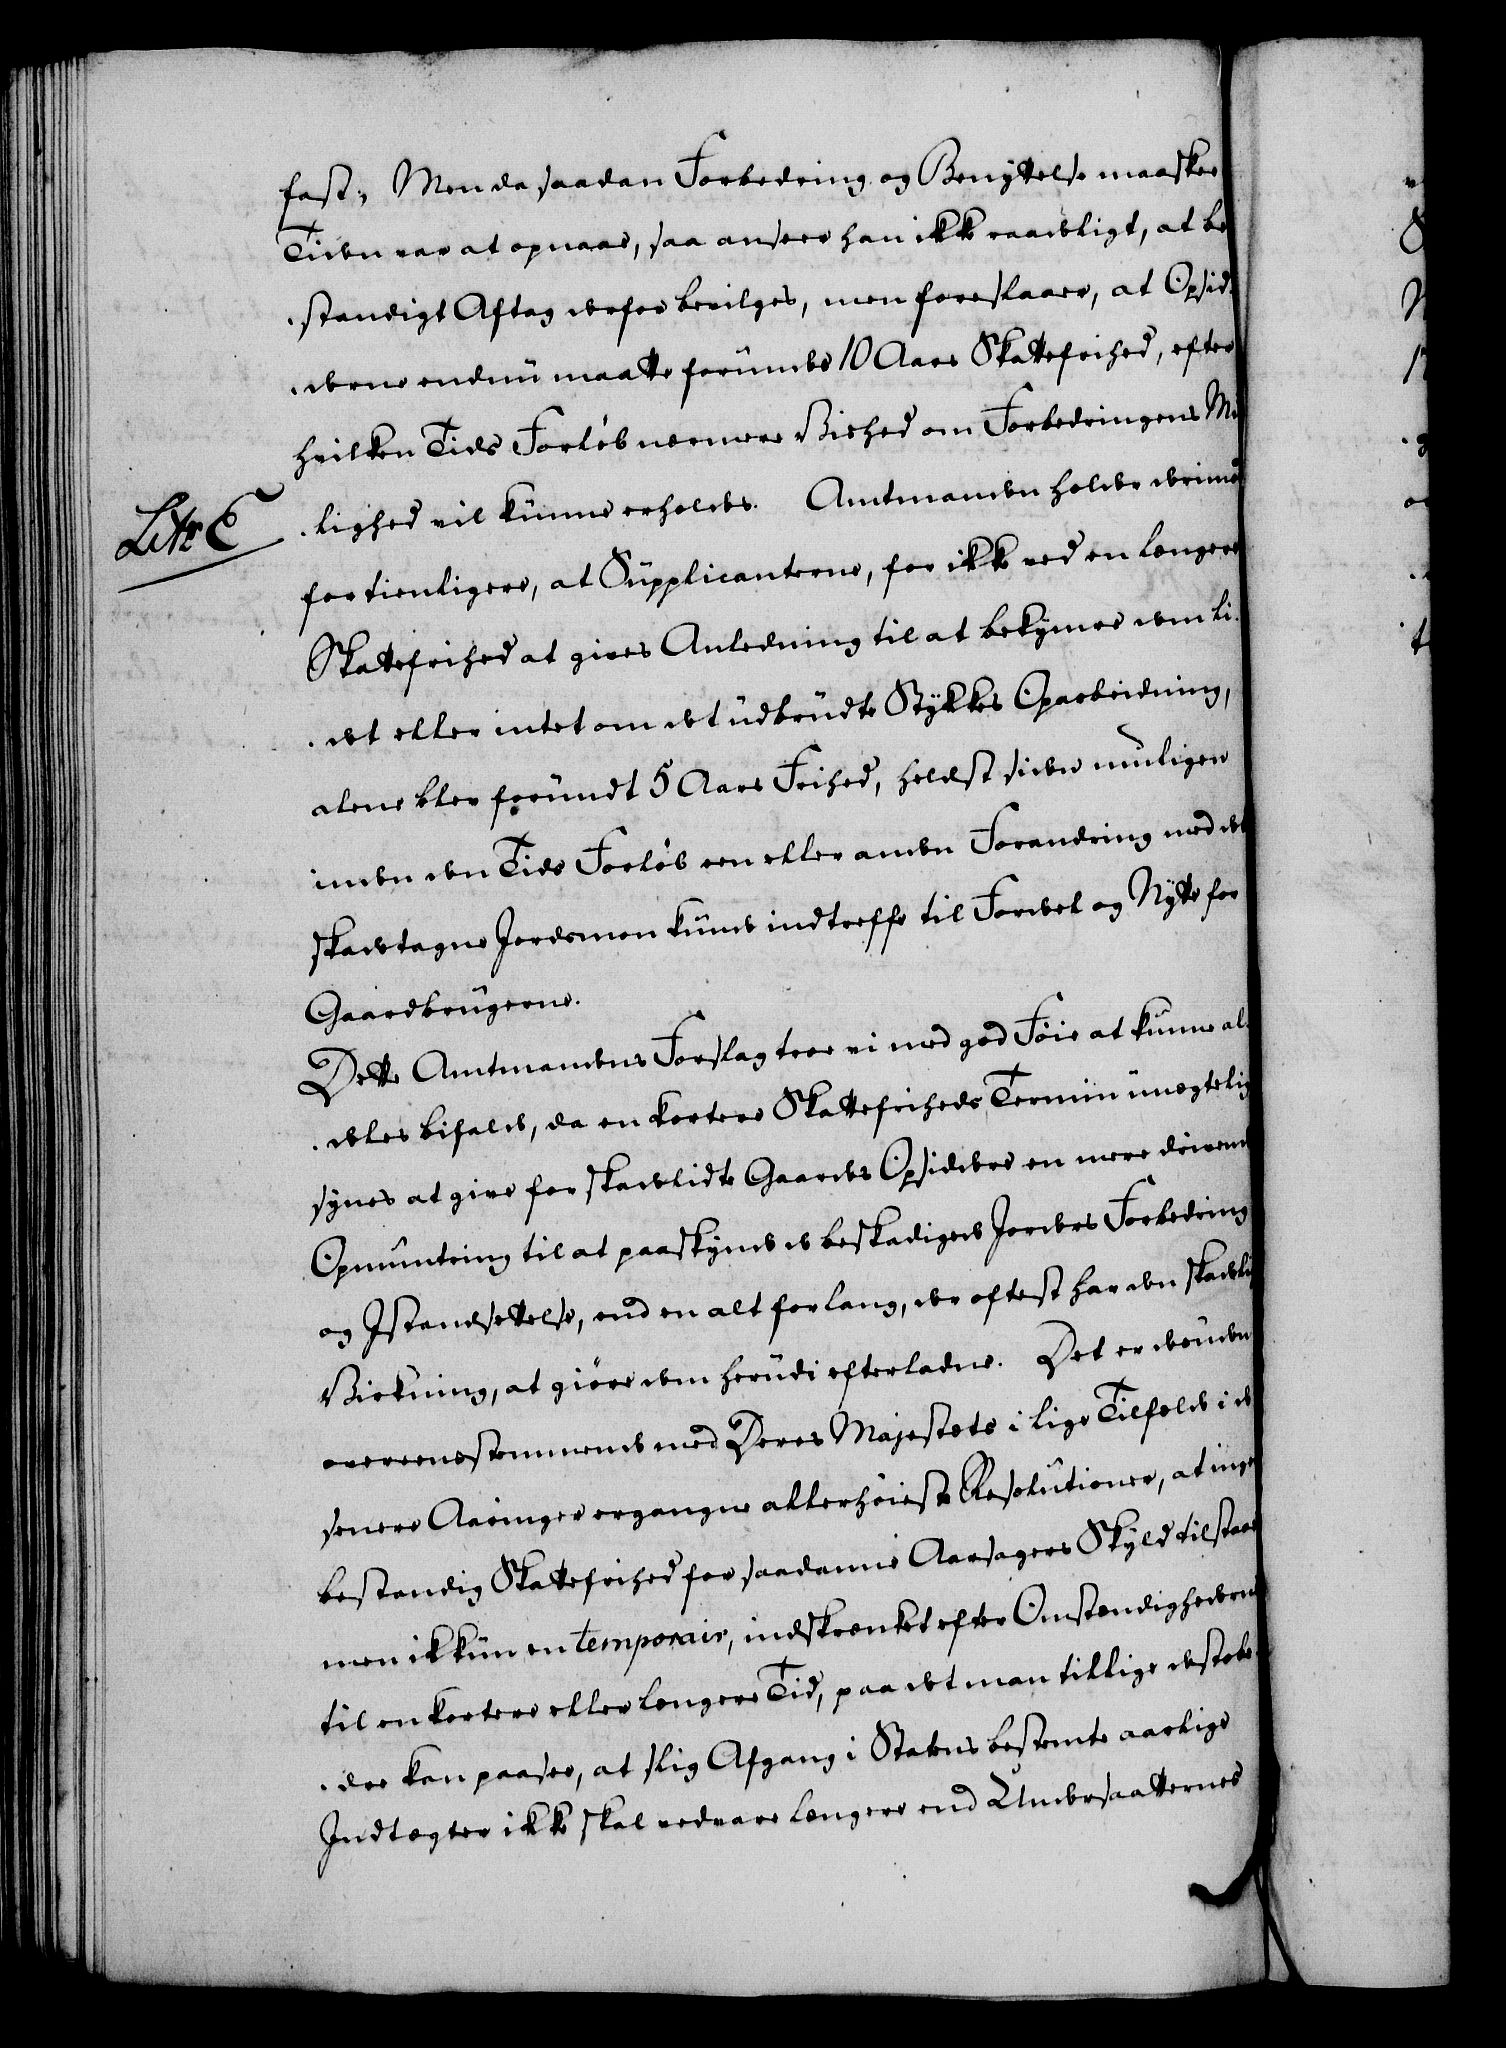 fast; Men da saadan Forbedring og Benyttelse maaskee
Tiden var at opnaae, saa anseer han ikke raadligt, at be
standigt Aftag derfor bevilges, men foreslaaer, at Opsid
derne endnu maatte forundes 10 Aars Skattefrihed, efter
hvilken Tids Forløb nærmere Vished om Forbedringens Mu
lighed vil kunne erholdes. Amtmanden holder derimod
Litr E
for tienligere, at Supplicanterne, for ikke ved en længere
Skattefrihed at gives Anledning til at bekymre dem li
det eller intet om det udbrudte Stykkes Oparbeidning,
alene blev forundt 5 Aars Frihed, heldst siden muligen
inden den Tids Forløb een eller anden Forandring med det
skadetagne Jordsmon kunde indtreffe til Fordeel og Nytte for
Gaardbrugerne.
Dette Amtmandens Forslag troe vi med god Føie at kunne al
deles bifalde, da en kortere Skattefriheds Termin unegtelig
synes at give for skadelidte Gaardes Opsiddere en mere drivende
Opmuntring til at paaskynde de beskadigede Jorders Forbedring
og Istandsettelse, end en alt for lang, der oftest har den skadelig
Virkning, at giøre dem herudi efterladne. Det er desuden
overeensstemmende med Deres Majestets i lige Tilfelde i de
senere Aaringer ergangne allerhøieste Resolutioner, at ingen
bestandig Skattefrihed for saadanne Aarsagers Skyld tilstaaes
men ikkun en temporair, indskrænket efter Omstændighederne
til en kortere eller længere Tid, paa det man tillige desto be
dre kan paasee, at slig Afgang i Statens bestemte aarlige
Indtægter ikke skal vedvare længere end Undersaatternes